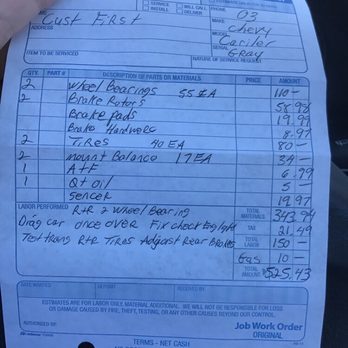 SERVICE
INSTALL
WILL CALL
DELIVER
PHONE
Cust First
03
MAKE
Chevy
Cavilier
Gray
ITEM TO BE SERVICED
NATURE OF SERVICE REQUEST
QTY. PART # DESCRIPTION OF PARTS OR MATERIALS PRICE AMOUNT
2 wheel Bearings 55 EA 110—
2 Brake Rotors 58.98
Brake pads 19.99
Brake Hardware 8.97
2 Tires 40 EA 80—
2 mount Balance 17 EA 34—
1 ATF 6.99
1 Qt oil 5—
sencer 19.97
LABOR PERFORMED R+R 2 wheel Bearing TOTAL MATERIALS 343.94
Diag car once over Fix check Eng light TAX 21.49
Test trans R+R Tires Adjust Rear Brakes TOTAL LABOR 150—
Gas 10—
TOTAL AMOUNT $525.43
DATE WANTED DEPOSIT RECEIVED BY
ESTIMATES ARE FOR LABOR ONLY, MATERIAL ADDITIONAL. WE WILL NOT BE RESPONSIBLE FOR LOSS
OR DAMAGE CAUSED BY FIRE, THEFT, TESTING, OR ANY OTHER CAUSES BEYOND OUR CONTROL.
AUTHORIZED BY
Job Work Order
ORIGINAL
TERMS - NET CASH